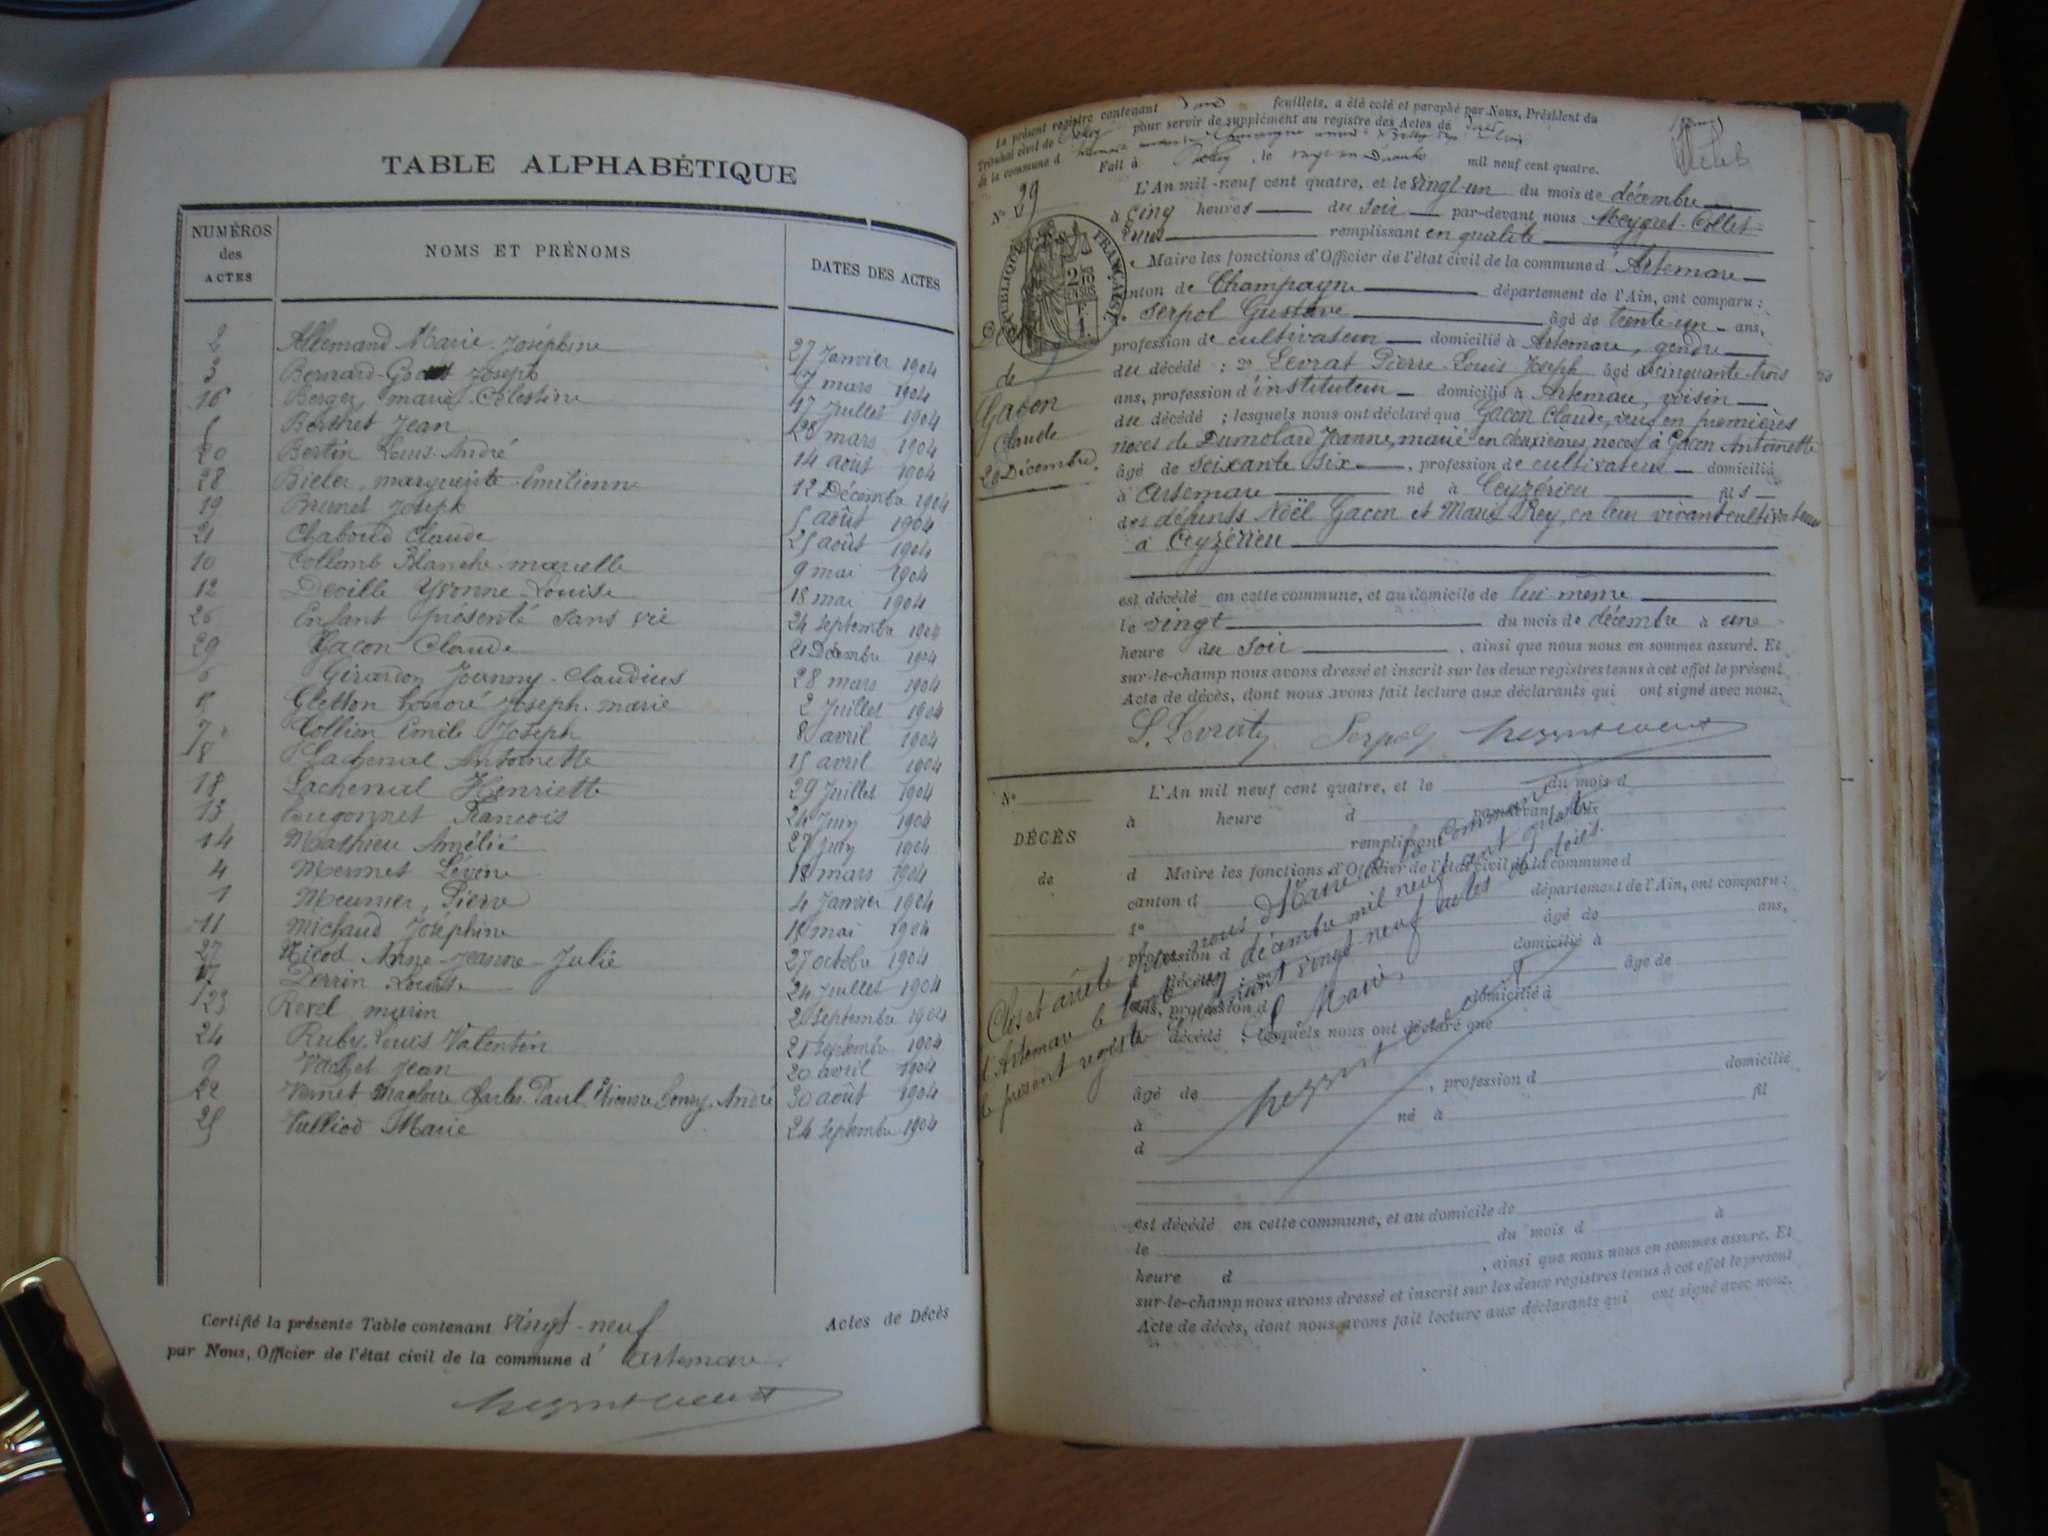 TABLE ALPHABÉTIQUE
NUMÉROS des ACTES
NOMS ET PRÉNOMS
DATES DES ACTES
2 Allemand Marie Joséphine 27 Janvier 1904
3 Bernard Joseph 7 mars 1904
16 Berger marie Célestine 17 Juillet 1904
Berthet Jean 28 mars 1904
20 Bertin Louis André 14 août 1904
28 Bieler marguerite Emilienne 12 Décembre 1904
19 Brunet Joseph 5 août 1904
21 Chaboud Claude 25 août 1904
10 Collomb Blanche marcelle 9 mai 1904
12 Deville Yvonne Louise 18 mai 1904
26 Enfant présenté sans vie 24 septembre 1904
29 Gacon Claude 21 Décembre 1904
6 Girardon Joanny-Claudius 28 mars 1904
Honoré Joseph marie 2 Juillet 1904
7 Emile Joseph 8 avril 1904
8 Lachenal Antoinette 15 avril 1904
18 Lachenal Henriette 29 Juillet 1904
13 Lugonnet François 24 Juin 1904
14 Mathieu Amélie 27 Juin 1904
4 Mermet mars 1904
1 Meunier Pierre 4 Janvier 1904
11 Michaud Joséphine mai 1904
27 Nicod Anne-Jeanne-Julie 27 octobre 1904
17 Perrin Louise 24 Juillet 1904
23 Revel septembre 1904
24 Ruby Louis Valentin 21 septembre 1904
9 Vachet Jean 20 avril 1904
22 Vernet Charles Paul Etienne André 30 août 1904
25 Vulliod Marie 24 septembre 1904
Certifié la présente Table contenant vingt-neuf Actes de Décès
par Nous, Officier de l'état civil de la commune d'Artemare
Le présent registre contenant feuillets, a été coté et paraphé par Nous, Président du
Tribunal civil de Belley pour servir de supplément au registre des Actes de
de la commune d'
Fait à Belley, le mil neuf cent quatre.
N° 29
L'An mil-neuf cent quatre, et le vingt-un du mois de décembre
à cinq heures du soir par-devant nous Meygret-Collet
remplissant en qualité
RÉPUBLIQUE FRANÇAISE
Maire les fonctions d'Officier de l'état civil de la commune d'Artemare
canton de Champagne département de l'Ain, ont comparu :
1° Serpol Gustave âgé de trente-un ans,
profession de cultivateur domicilié à Artemare, gendre
du décédé ; 2° Levrat Pierre Louis Joseph âgé de cinquante-trois
ans, profession d'instituteur domicilié à Artemare, voisin
du décédé ; lesquels nous ont déclaré que Gacon Claude, veuf en premières
noces de Dumolard Jeanne, marié en deuxièmes noces à Gacon Antoinette
âgé de soixante six, profession de cultivateur domicilié
à Artemare né à Ceyzérieu fils
des défunts Noël Gacon et Marie Rey, en leur vivant cultivateurs
à Ceyzérieu
de
Gacon
Claude
20 Décembre.
est décédé en cette commune, et au domicile de lui-même
le vingt du mois de décembre à une
heure du soir, ainsi que nous nous en sommes assuré. Et
sur-le-champ nous avons dressé et inscrit sur les deux registres tenus à cet effet le présent
Acte de décès, dont nous avons fait lecture aux déclarants qui ont signé avec nous.
L. Levrat Serpol
N° L'An mil neuf cent quatre, et le du mois d
à heure d par-devant nous
DÉCÈS
de
remplissant
d Maire les fonctions d'Officier de l'état civil de la commune d
canton d département de l'Ain, ont comparu :
1° âgé de ans,
profession d domicilié à
décédé âgé de
ans, profession d domicilié à
décédé ; lesquels nous ont déclaré que
âgé de , profession d domicilié
à né à fil
d
Clos et arrêté par nous Maire de la commune
d'Artemare le trente un décembre mil neuf cent quatre
le présent registre contenant vingt-neuf actes de décès.
Le Maire,
est décédé en cette commune, et au domicile de
le du mois d à
heure d , ainsi que nous nous en sommes assuré. Et
sur-le-champ nous avons dressé et inscrit sur les deux registres tenus à cet effet le présent
Acte de décès, dont nous avons fait lecture aux déclarants qui ont signé avec nous.